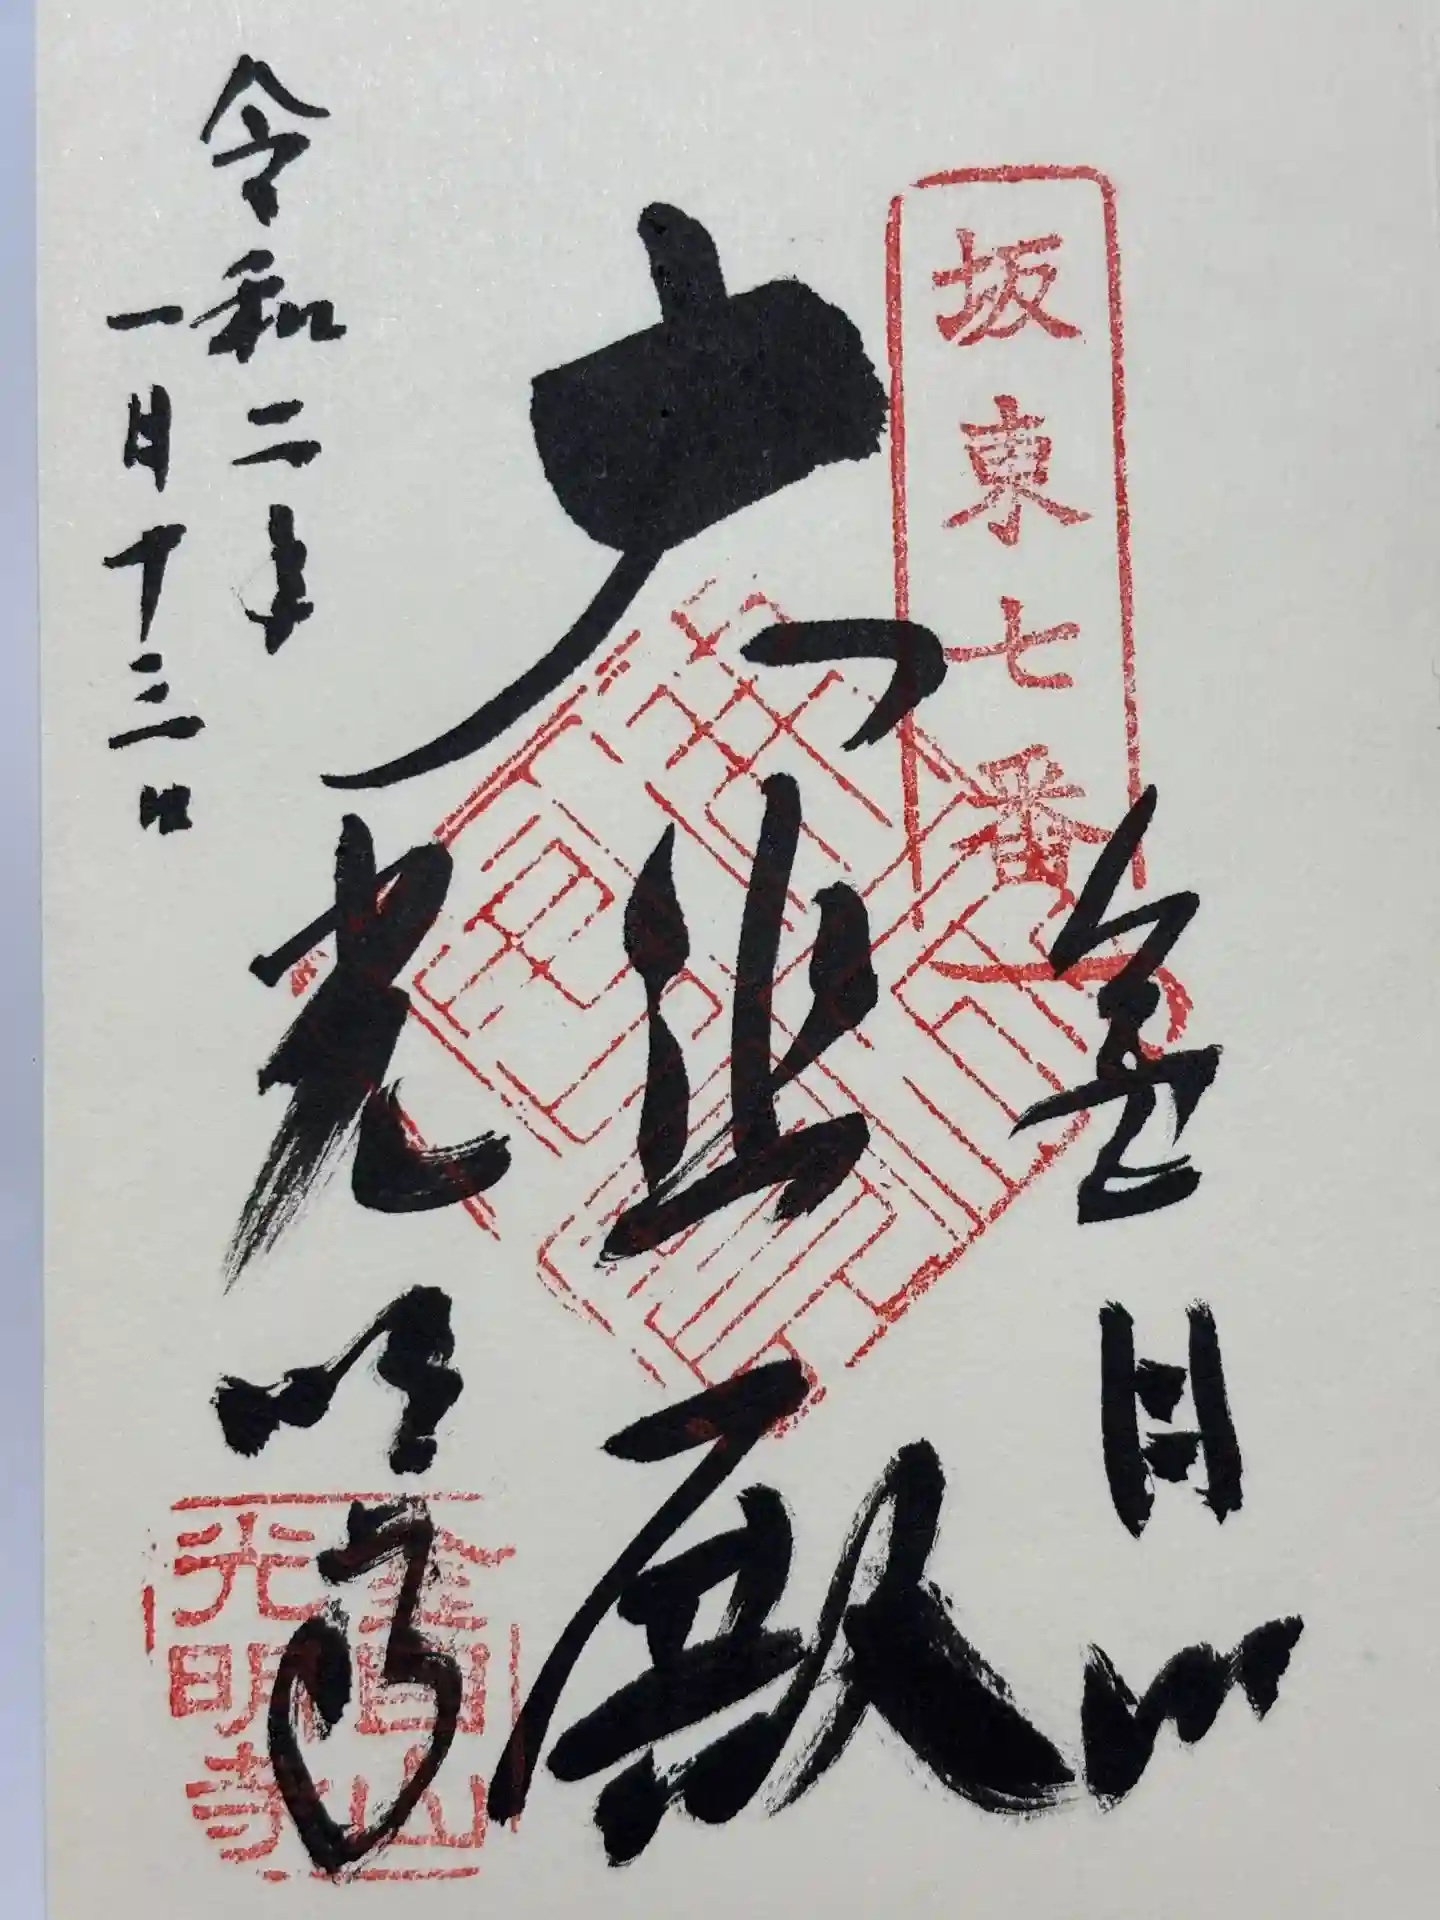 坂東七番
金目山
大悲殿
光明寺
令和二年
一月十三日
金目山
光明寺